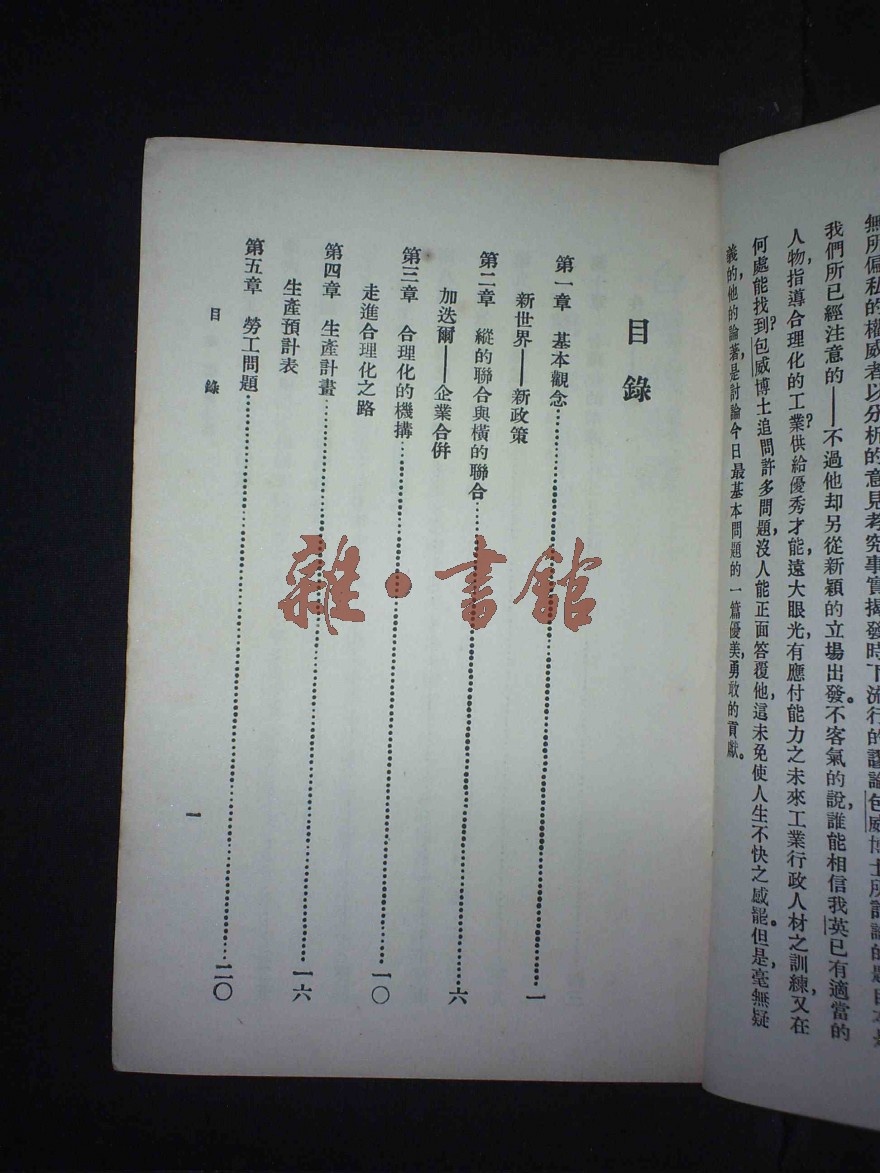 我們所已經注意的——不過他却另從新穎的立場出發。不客氣的說,誰能相信我英已有適當的
人物,指導合理化的工業?供給優秀才能,遠大眼光,有應付能力之未來工業行政人材之訓練,又在
何處能找到?包威博士追問許多問題,沒人能正面答覆他,這未免使人生不快之感罷。但是,毫無疑
義的,他的論著,是討論今日最基本問題的一篇優美,勇敢的貢獻。
目錄
第一章 基本觀念……一
新世界——新政策
第二章 縱的聯合與橫的聯合……六
加迭爾——企業合併
第三章 合理化的機搆……一〇
走進合理化之路
第四章 生產計畫……一六
生產預計表
第五章 勞工問題……二〇
目錄
一
雜·書館